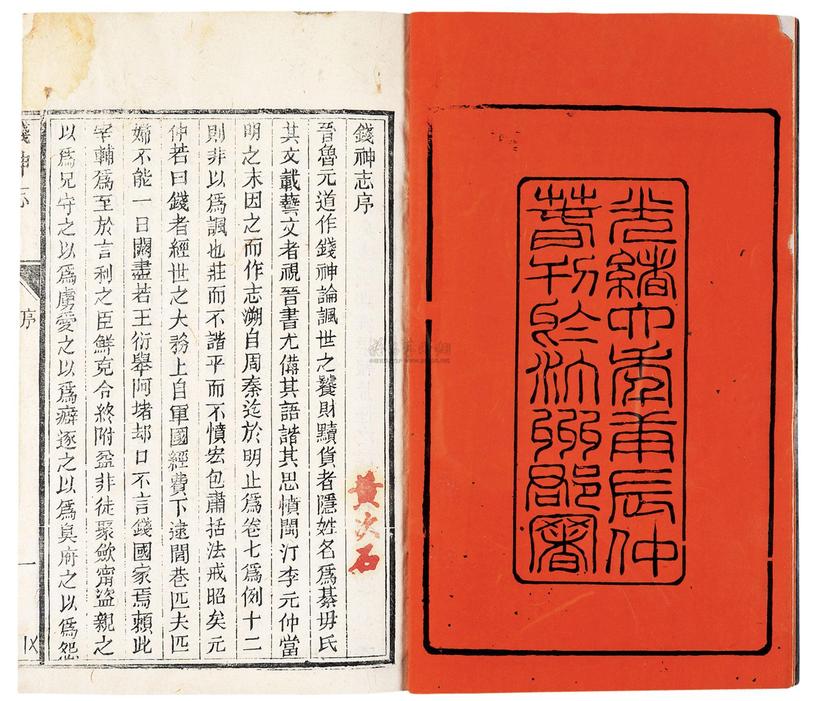 光緒六年庚辰仲
春刊於汀州郡署
錢神志序
黃次石
晉魯元道作錢神論諷世之饕財黷貨者隱姓名爲綦毋氏
其文載藝文者視晉書尤備其語諧其思憤閩汀李元仲當
明之末因之而作志溯自周秦迄於明止爲卷七爲例十二
則非以爲諷也莊而不諧平而不憤宏包肅括法戒昭矣元
仲若曰錢者經世之大務上自軍國經費下逮閭巷匹夫匹
婦不能一日闕盡若王衍舉阿堵却口不言錢國家焉賴此
宰輔爲至於言利之臣鮮克令終附盈非徒聚歛甯盜親之
以爲兄守之以爲虜愛之以爲癖逐之以爲臭府之以爲怨
錢神志
序
一